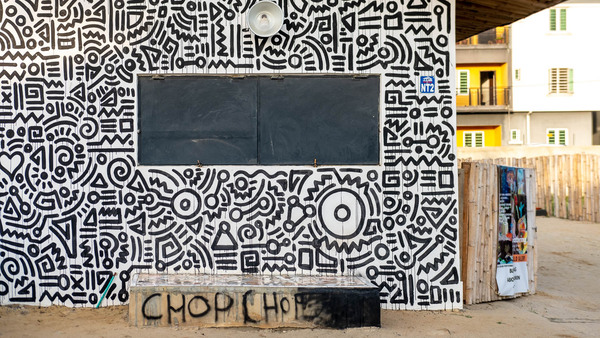 NT2
CHOP CHOP